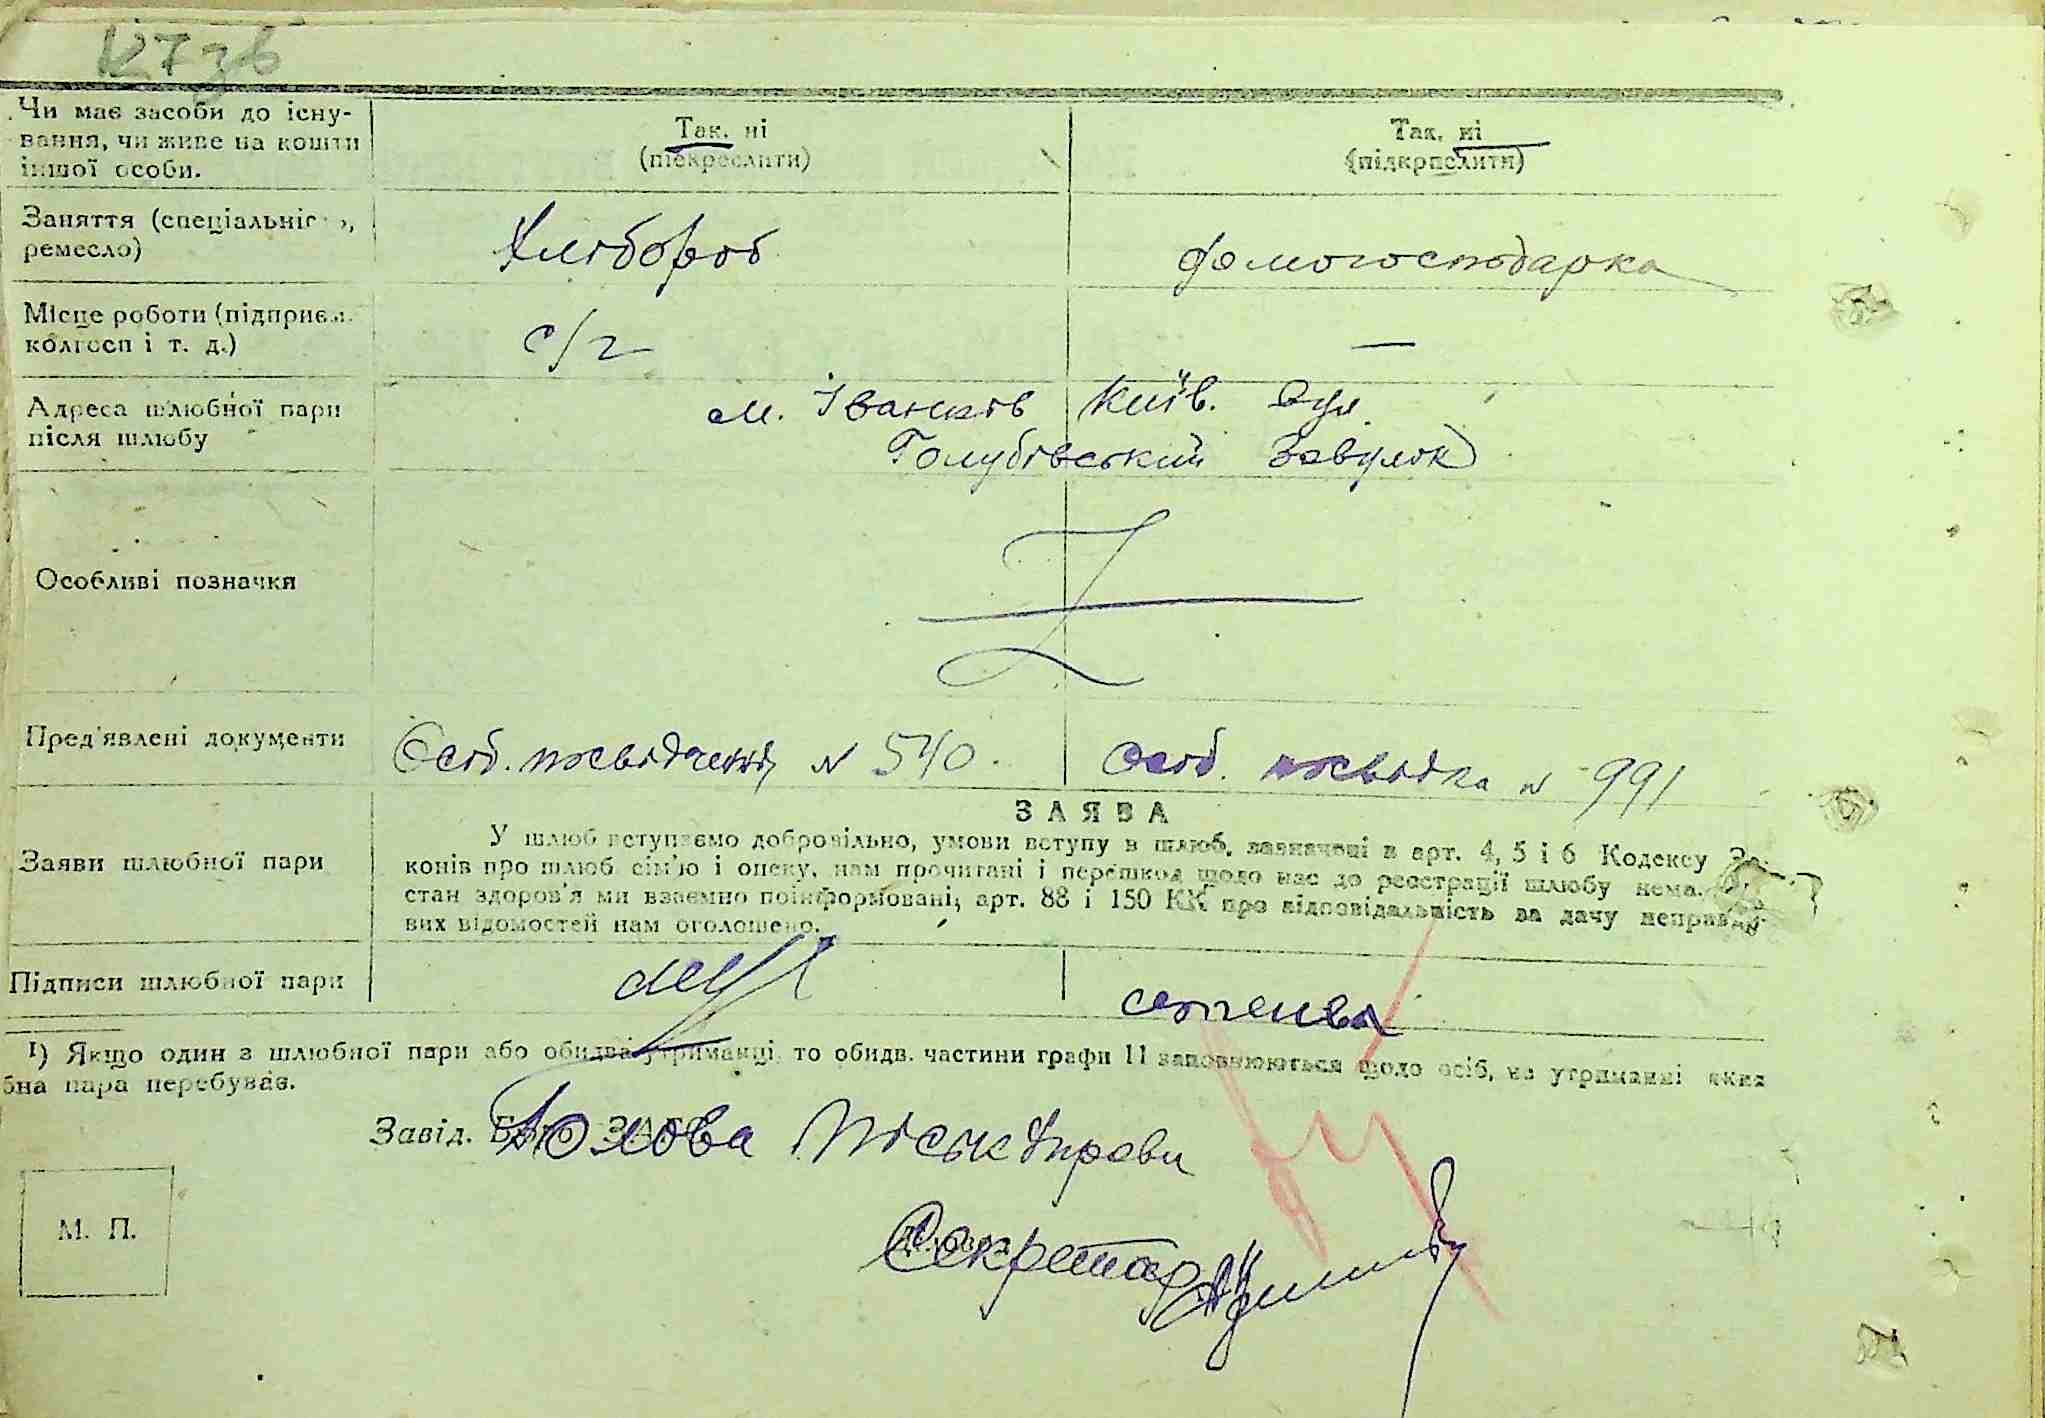 К7зв
Чи має засоби до існу-
вання, чи живе на кошти
іншої особи.
Так, ні
(підкреслити)
Так, ні
(підкреслити)
Заняття (спеціальність,
ремесло)
Хлібороб
домогосподарка
Місце роботи (підприєм.
колгосп і т. д.)
с/г
—
Адреса шлюбної пари
після шлюбу
м. Іванків Київ.
Голубівський Завулок
Особливі позначки
Z
Пред'явлені документи
Особ. посвідчення N 540.
Особ. посвідка N 991
Заяви шлюбної пари
ЗАЯВА
У шлюб вступаємо добровільно, умови вступу в шлюб, зазначені в арт. 4, 5 і 6 Кодексу За-
конів про шлюб, сім'ю і опеку, нам прочитані і перешкод щодо нас до реєстрації шлюбу нема.
стан здоров'я ми взаємно поінформовані, арт. 88 і 150 КК про відповідальність за дачу неправди-
вих відомостей нам оголошено.
Підписи шлюбної пари
¹) Якщо один з шлюбної пари або обидва утриманці, то обидв. частини графи 11 заповнюються щодо осіб, на утриманні яких
бна пара перебуває.
Завід. Бюро ЗАГС
Голова Міськ Управи
Діловод
Секретар
М. П.